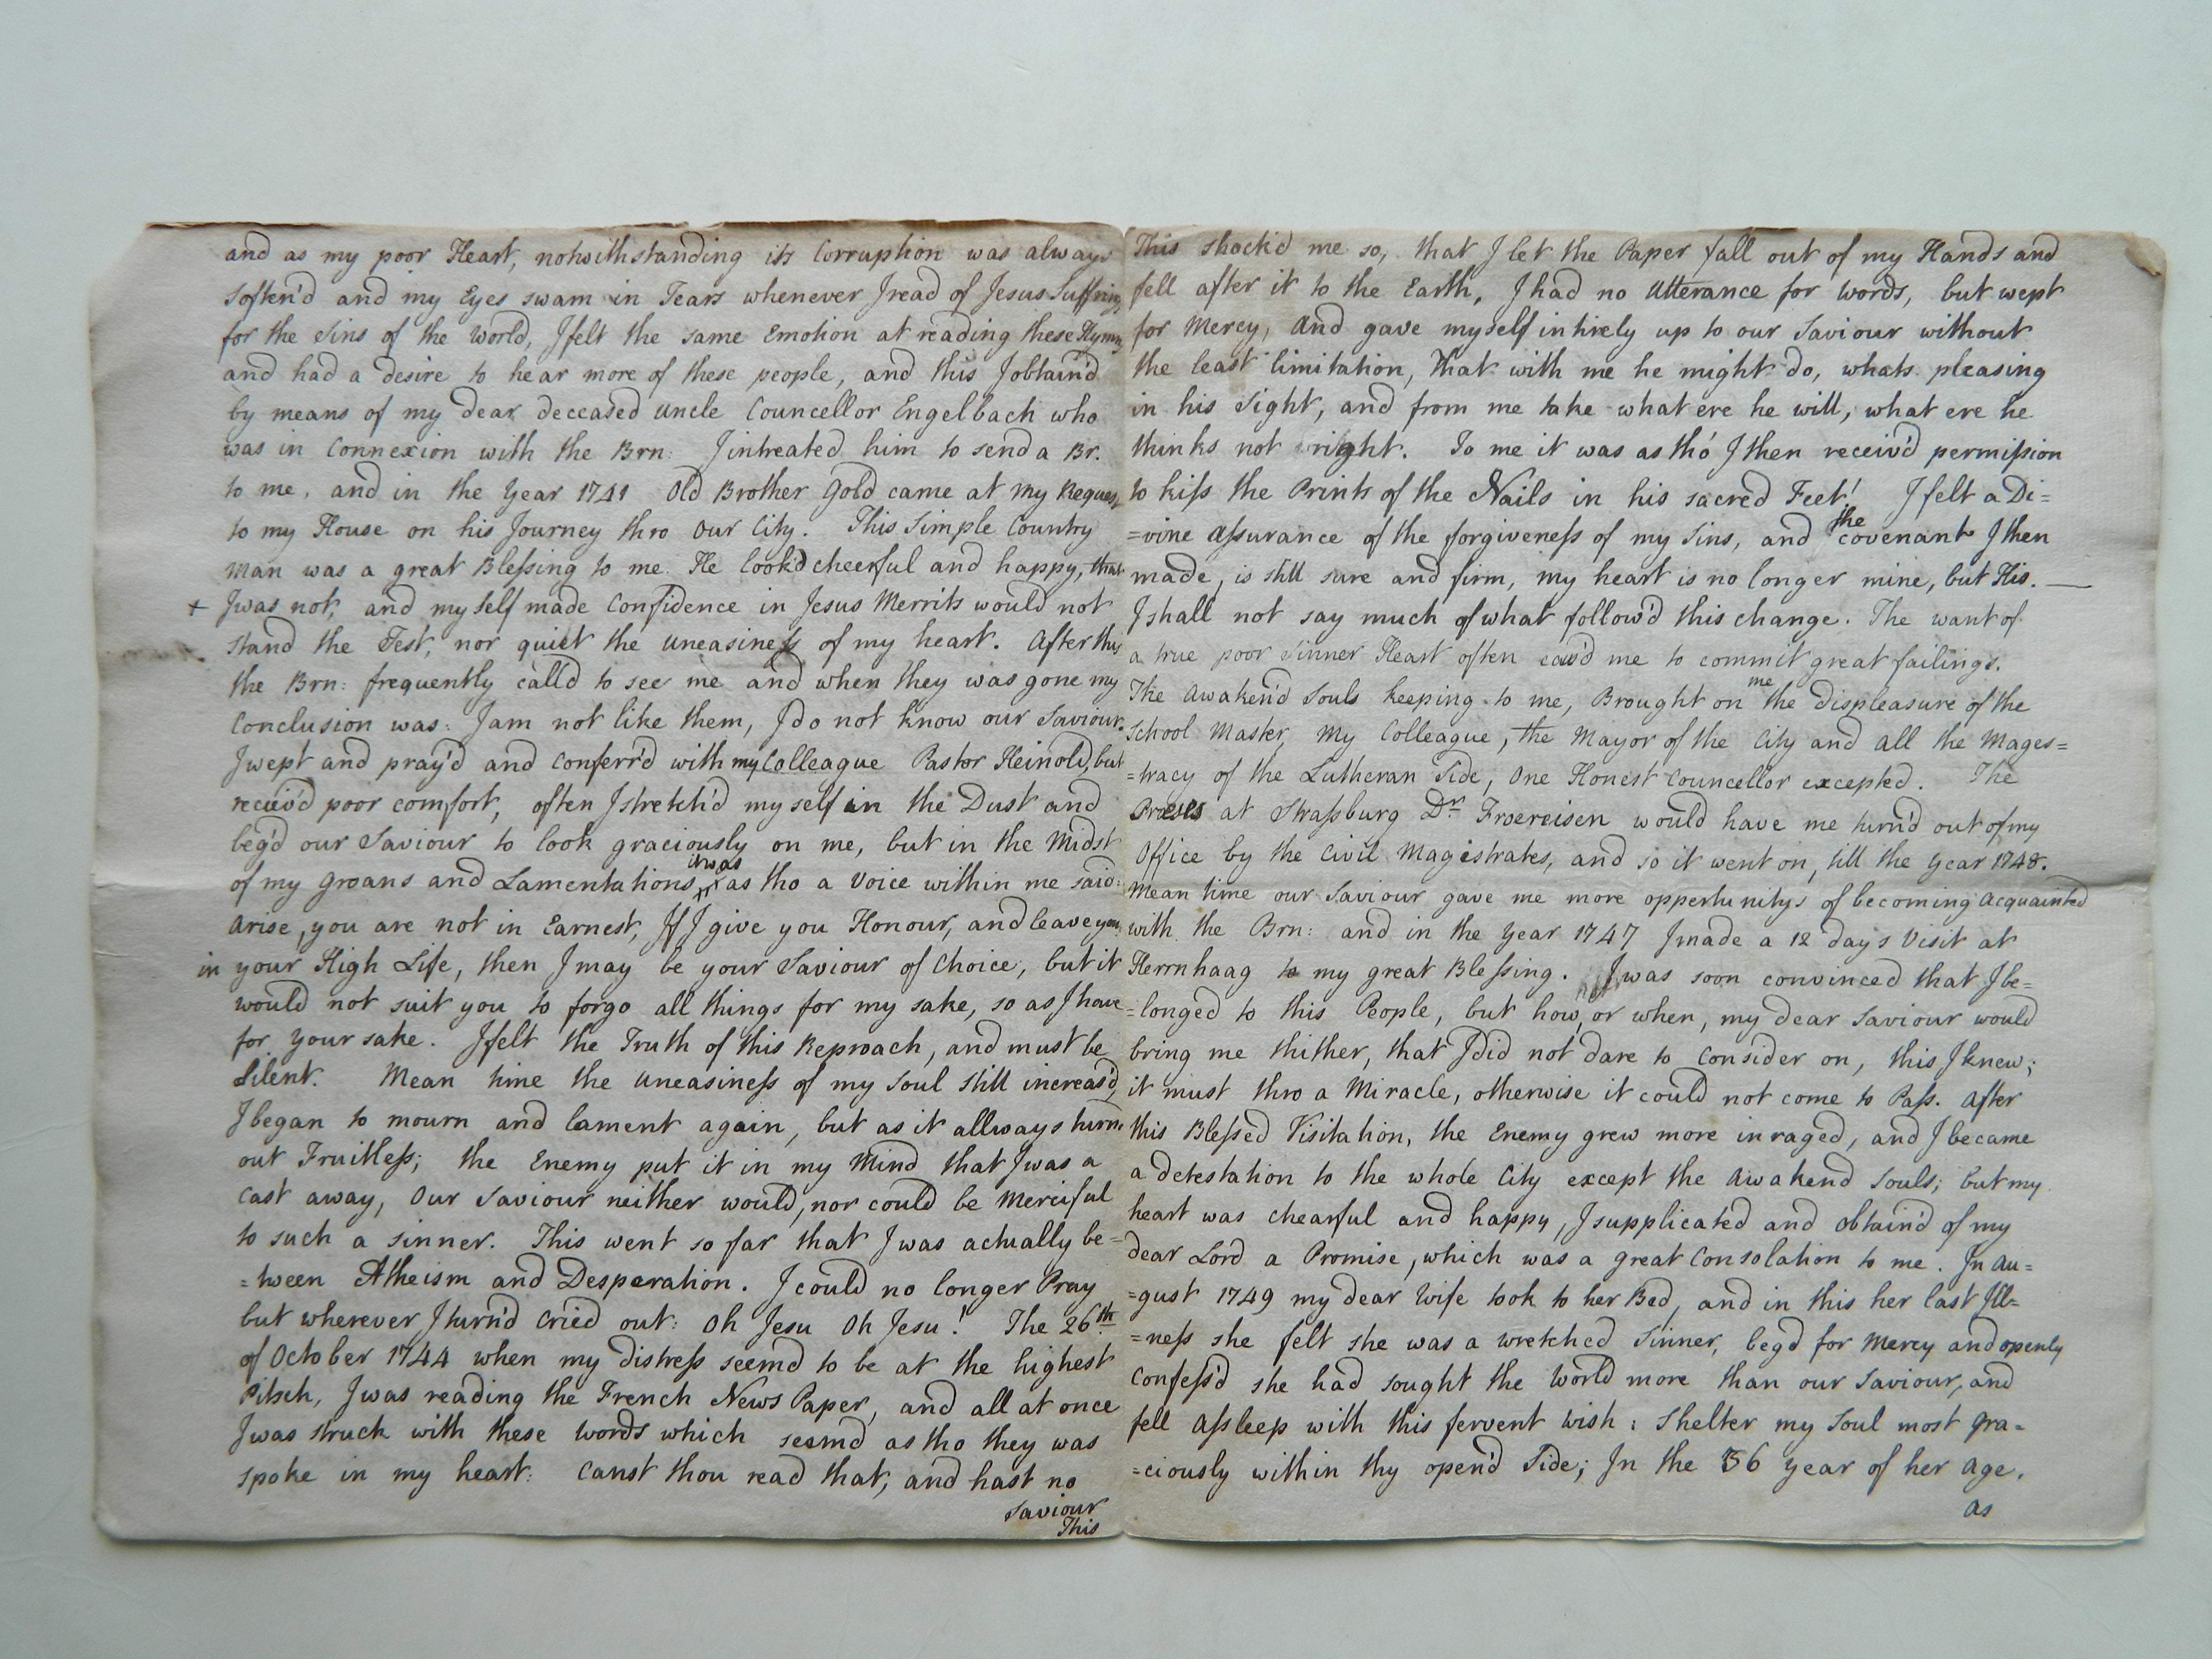 and as my poor Heart, notwithstanding its Corruption was always
soften'd and my Eyes swam in Tears whenever I read of Jesus Suffring
for the Sins of the World, I felt the same Emotion at reading these Hymns
and had a desire to hear more of these people, and this I obtain'd
by means of my dear deceased Uncle Councellor Engelbach who
was in Connexion with the Brn: I intreated him to send a Br.
to me, and in the Year 1741 Old Brother Gold came at my Request
to my House on his Journey thro Our City. This Simple Country
Man was a great Blessing to me. He look'd cheerful and happy, that
+ I was not, and my self made Confidence in Jesus Merrits would not
stand the Test, nor quiet the uneasiness of my heart. After this
the Brn: frequently call'd to see me and when they was gone my
Conclusion was: I am not like them, I do not know our Saviour.
I wept and pray'd and Conferr'd with my Colleague Pastor Heinold, but
receiv'd poor comfort, often I stretch'd my self in the Dust and
beg'd our Saviour to look graciously on me, but in the Midst
of my Groans and Lamentations it was as tho a Voice within me said:
Arise, you are not in Earnest, If I give you Honour, and leave you
in your High Life, then I may be your Saviour of Choice, but it
would not suit you to forgo all things for my sake, so as I have
for your sake. I felt the Truth of this Reproach, and must be
Silent. Mean time the uneasiness of my Soul still increas'd,
I began to mourn and lament again, but as it allways turn'd
out Fruitless; the Enemy put it in my Mind that I was a
Cast away, Our Saviour neither would, nor could be Merciful
to such a sinner. This went so far that I was actually be=
=tween Atheism and Desparation. I could no longer Pray
but wherever I turn'd cried out: Oh Jesu Oh Jesu! The 26th
of October 1744 when my distress seemd to be at the highest
Pitsch, I was reading the French News Paper, and all at once
I was struck with these Words which seemd as tho they was
spoke in my heart: Canst thou read that, and hast no
Saviour
This
This shock'd me so, that I let the Paper fall out of my Hands and
fell after it to the Earth, I had no Utterance for Words, but wept
for Mercy, and gave myself intirely up to our Saviour without
the least limitation, That with me he might do, whats pleasing
in his Sight, and from me take what ere he will, what ere he
thinks not right. To me it was as tho' I then receiv'd permission
to kiss the Prints of the Nails in his sacred Feet! I felt a Di=
=vine Assurance of the forgiveness of my Sins, and the covenant I then
made, is still sure and firm, my heart is no longer mine, but His. —
I shall not say much of what follow'd this change. The want of
a true poor Sinner Heart often caus'd me to commit great failings.
The Awaken'd Souls keeping to me, Brought on me the Displeasure of the
School Master, My Colleague, the Mayor of the City and all the Mages=
=tracy of the Lutheran Side, One Honest Councellor excepted. The
Praeses at Strassburg Dr. Froereisen would have me turn'd out of my
Office by the Civil Magistrates, and so it went on, till the Year 1748.
Mean time our Saviour gave me more oppertunitys of becoming Acquainted
with the Brn: and in the Year 1747 I made a 12 days Visit at
Herrnhaag to my great Blessing. I was soon convinced that I be=
=longed to this People, but how, or when, my dear Saviour would
bring me thither, that I did not dare to Consider on, this I knew;
it must thro a Miracle, otherwise it could not come to Pass. After
this Blessed Visitation, the Enemy grew more inraged, and I became
a detestation to the whole City except the Awakend Souls; but my
heart was chearful and happy, I supplicated and obtain'd of my
dear Lord a Promise, which was a great Consolation to me. In Au=
=gust 1749 my dear Wife took to her Bed, and in this her last Ill=
=ness she felt she was a wretched Sinner, beg'd for Mercy and openly
Confess'd she had sought the World more than our Saviour, and
fell Assleep with this fervent Wish: Shelter my Soul most Gra=
=ciously within thy open'd Side; In the 36 Year of her Age.
as